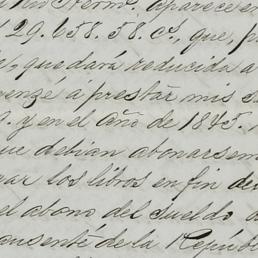 Herm.s aparece en
29.658.58.cs, que, p
quedará reducida a
enzé á prestar mis s
y en el año de 1845.
que debian abonarsem
los libros en fin de
el abono del sueldo
ausente de la Repúb